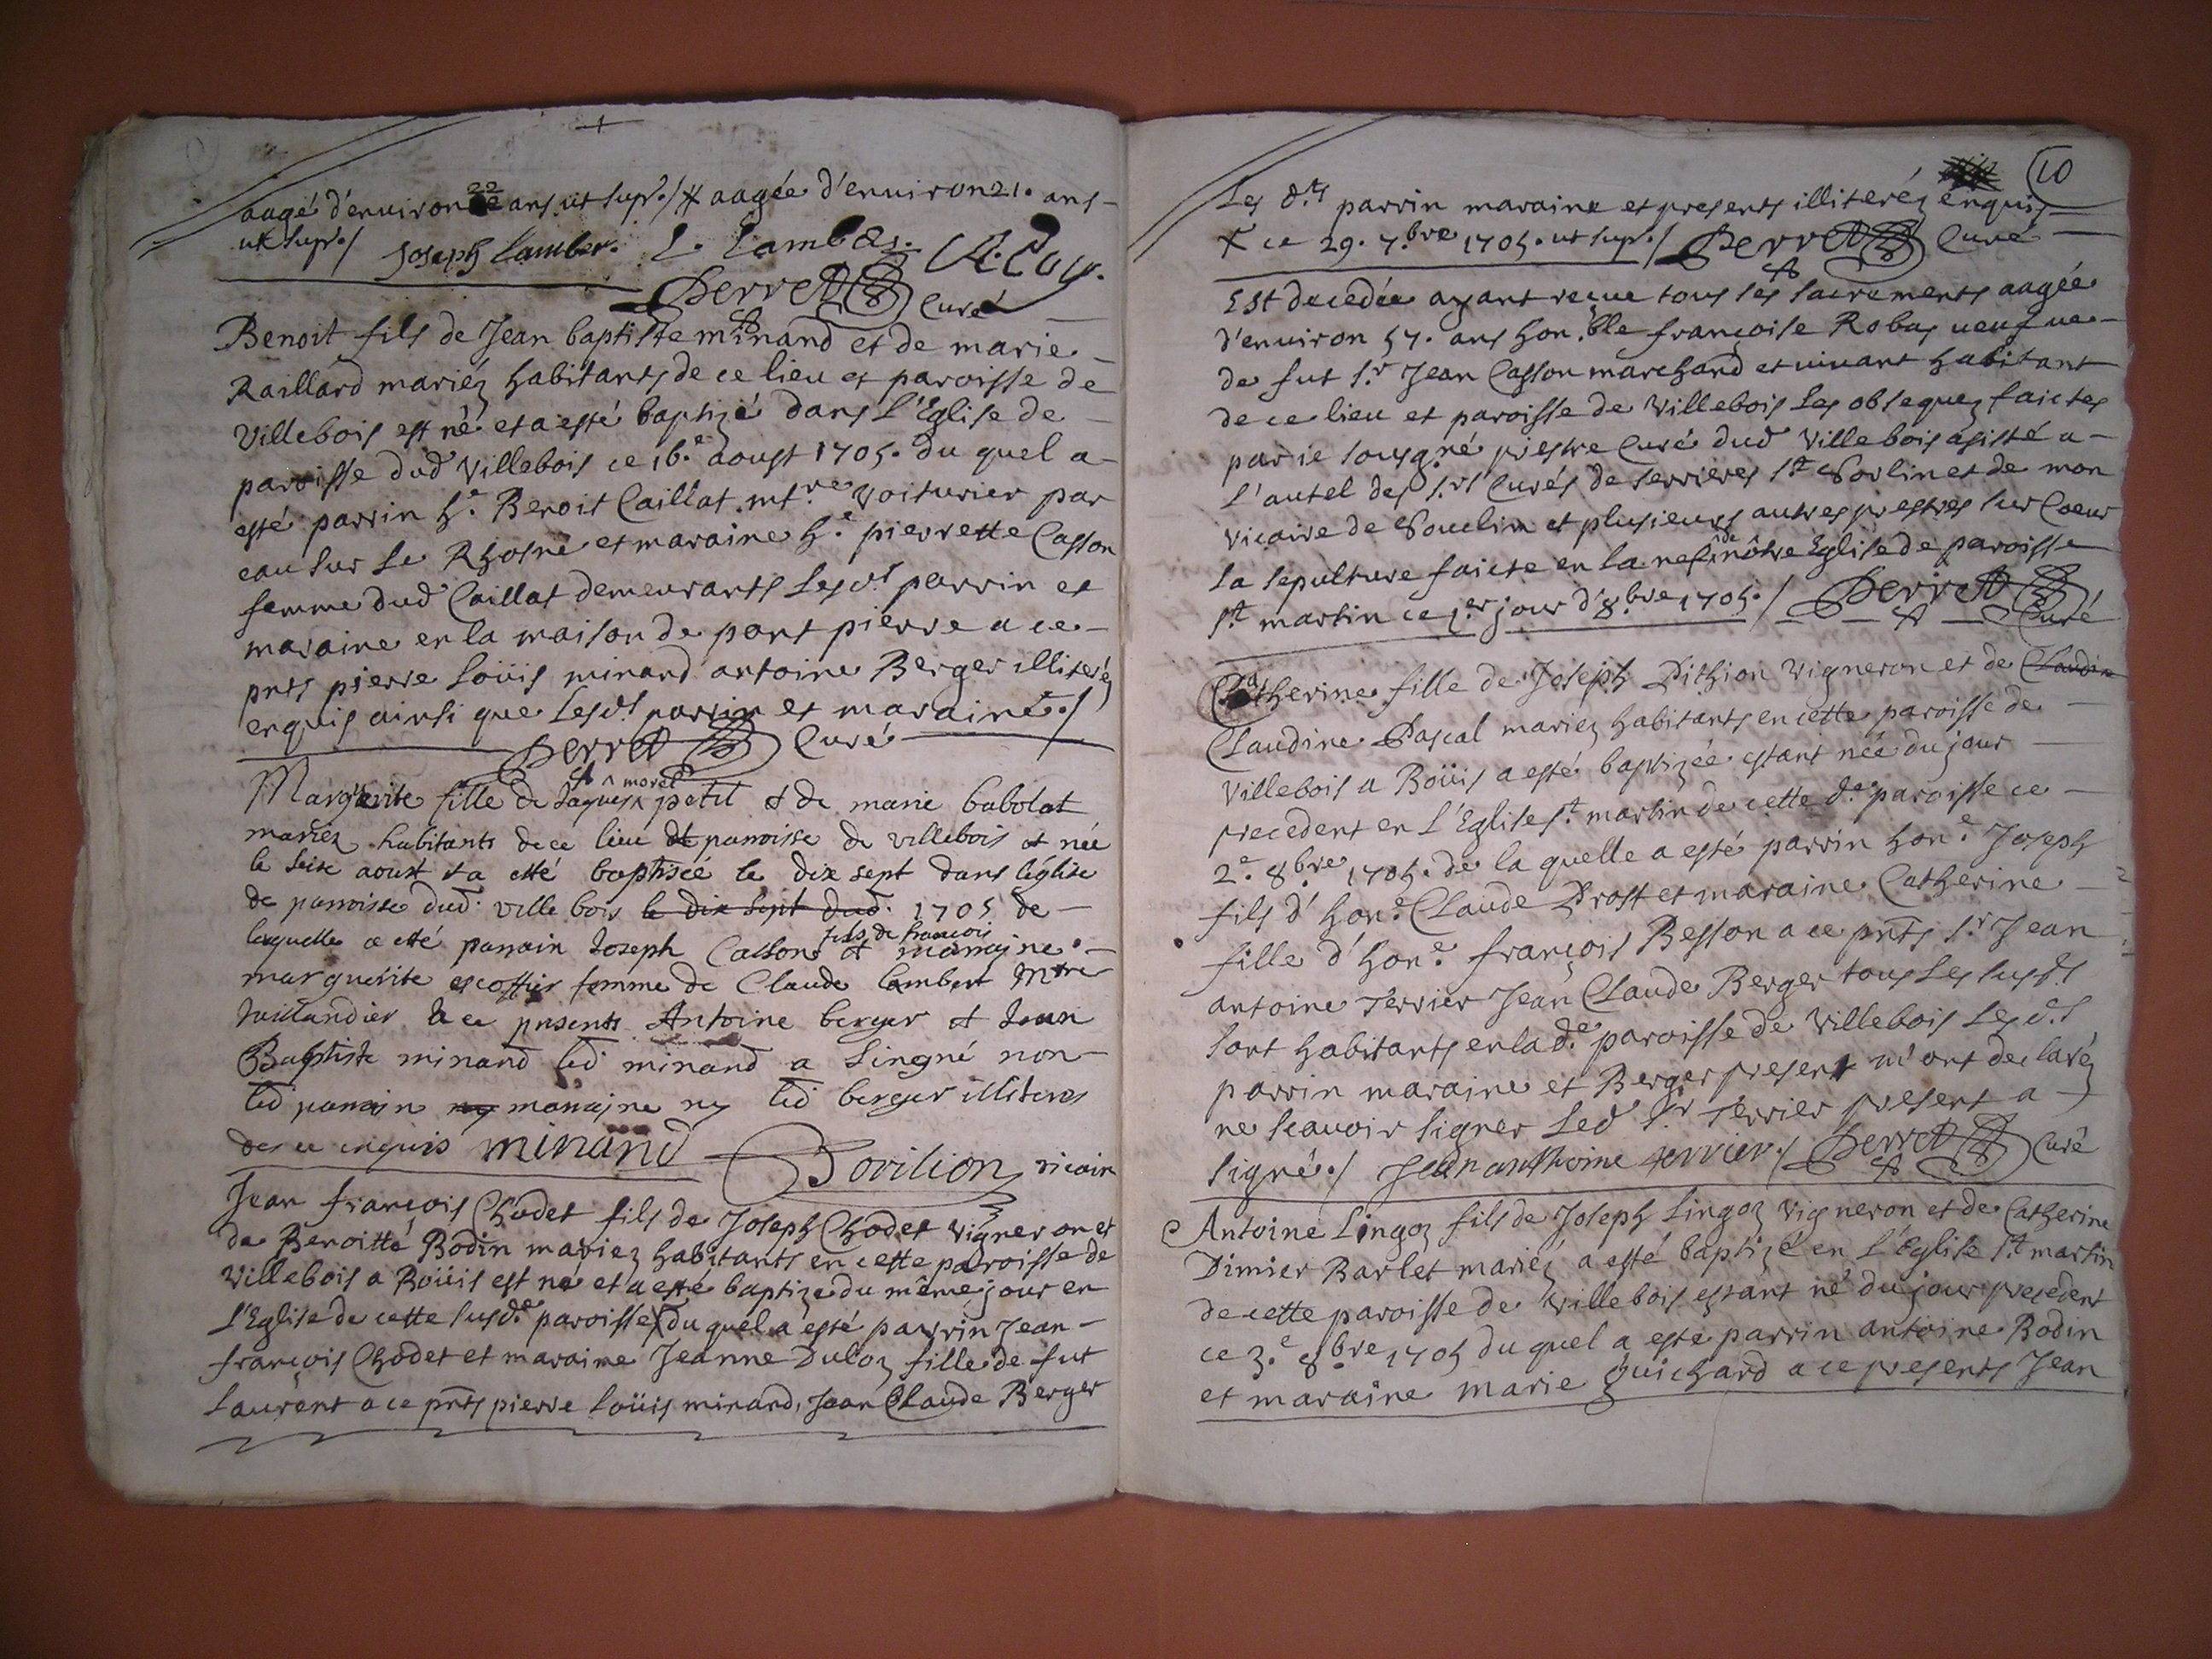 aagé d'environ 22 ans ut supr./ X aagée d'environ 21. ans
ut supr./ Joseph Lamber. L. Lambér.
Perret Curé
Benoit fils de Jean baptiste minand et de marie
Raillard mariéz habitants de ce lieu et paroisse de
Villebois est né et a esté baptizé dans l'Eglise de
paroisse dud Villebois ce 16.e aoust 1705. du quel a
esté parrin h.e Benoit Caillat mtre voiturier par
eau sur le Rhosne et maraine h.e pierrette Casson
femme dud Caillat demeurants lesd.s parrin et
maraine en la maison de pont pierre a ce
pnts pierre Loüis minand antoine Berger illiteréz
enquis ainsi que lesd.s parrin et maraine./
Perret Curé
Marguerite fille de Jaques ^ morel petit et de marie babolat
mariez habitants de ce lieu et parroisse de villebois et née
le seise aoust et a etté baptisée le dix sept dans l'église
de parroisse dud. ville bois le dix sept dud. 1705 de
laquelle a etté parrain Joseph Casson fils de francois et marrajne
marguerite escoffier femme de Claude Lambert Mtre
taillandier a ce presents Antoine berger et Jean
Baptiste minand led minand a singné non
led parrain ny marrajne ny led berger illiteres
de ce enquis minand Dovilion vicaire
Jean françois Chodet fils de Joseph Chodet vigneron et
de Benoitte Bodin mariez habitants en cette paroisse de
Villebois a Boüis est né et a esté baptizé du même jour en
l'Eglise de cette susd.e paroisse X du quel a esté parrin Jean
françois Chodet et maraine Jeanne Duloz fille de fut
Laurent a ce pnts pierre Loüis minand, Jean Claude Berger
10
Les d.ts parrin maraine et presents illiteréz enquis
X ce 29. 7.bre 1705. ut supr./ Perret Curé
Est decedée ayant reçue tous les sacrements aagée
d'environ 57. ans hon.ble françoise Robas veufve
de fut s.r Jean Casson marchand et vivant habitant
de ce lieu et paroisse de Villebois les obseques faictes
par ie sousg.né prestre Curé dud Villebois asisté a
l'autel des s.rs Curés de serrieres s.t Sorlin et de mon
vicaire de Souclin et plusieurs autres prestres sur Coeur
la sepulture faicte en la nef de nôtre Eglise de paroisse
s.t martin ce 1.er jour d'8.bre 1705./ Perret Curé
Catherine fille de Joseph Pithion vigneron et de Claudin
Claudine Pascal mariez habitants en cette paroisse de
Villebois a Boüis a esté baptizée estant née du jour
precedent en l'Eglise s.t martin de cette d.e paroisse ce
2.e 8.bre 1705. de la quelle a esté parrin hon.e Joseph
fils d'hon.e Claude Prost et maraine Catherine
fille d'hon.e françois Besson a ce pnts s.r Jean
antoine Terrier Jean Claude Berger tous les susd.s
sont habitants en la d.e paroisse de Villebois les d.s
parrin maraine et Berger present m'ont declaréz
ne scavoir signer led s.r Terrier present a
signé./ Jean anthoine terrier./ Perret Curé
Antoine Lingoz fils de Joseph Lingoz vigneron et de Catherine
Dimier Barlet mariéz a esté baptizé en l'Eglise s.t martin
de cette paroisse de Villebois estant né du jour precedent
ce 3.e 8.bre 1705 du quel a esté parrin antoine Bodin
et maraine marie guichard a ce presents Jean